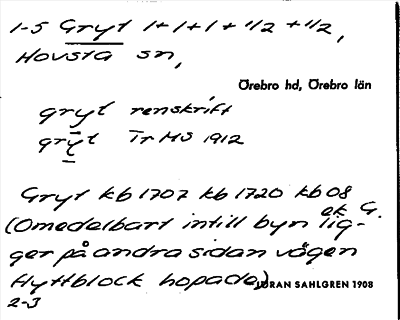 1-5 Gryt 1+1+1+1/2+1/2,
Hovsta sn,
Örebro hd, Örebro län
gryt renskrift
gryt Tr MS 1912
Gryt kb 1707 kb 1720 kb 08
ek G.
(Omedelbart intill byn lig-
ger på andra sidan vägen
flyttblock hopade)
JÖRAN SAHLGREN 1908
2-3